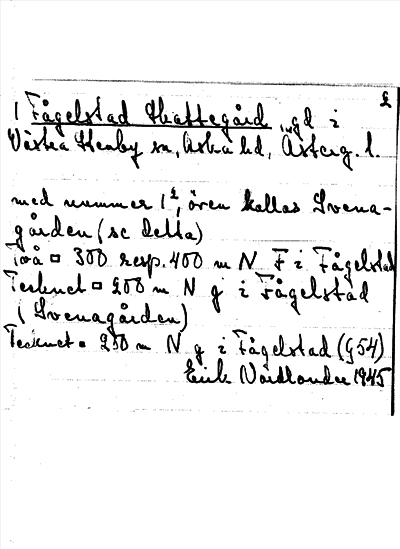 £
1 Fågelstad Skattegård, gd i
Västra Stenby sn, Aska hd, Österg. l.
med nummer 1£, även kallas Svena-
gården (se detta)
Två □ 300 resp. 400 m N F i Fågelstad
Tecknet □ 200 m N g i Fågelstad
(Svenagården)
Tecknet □ 250 m N g i Fågelstad (G54)
Erik Nordlander 1945